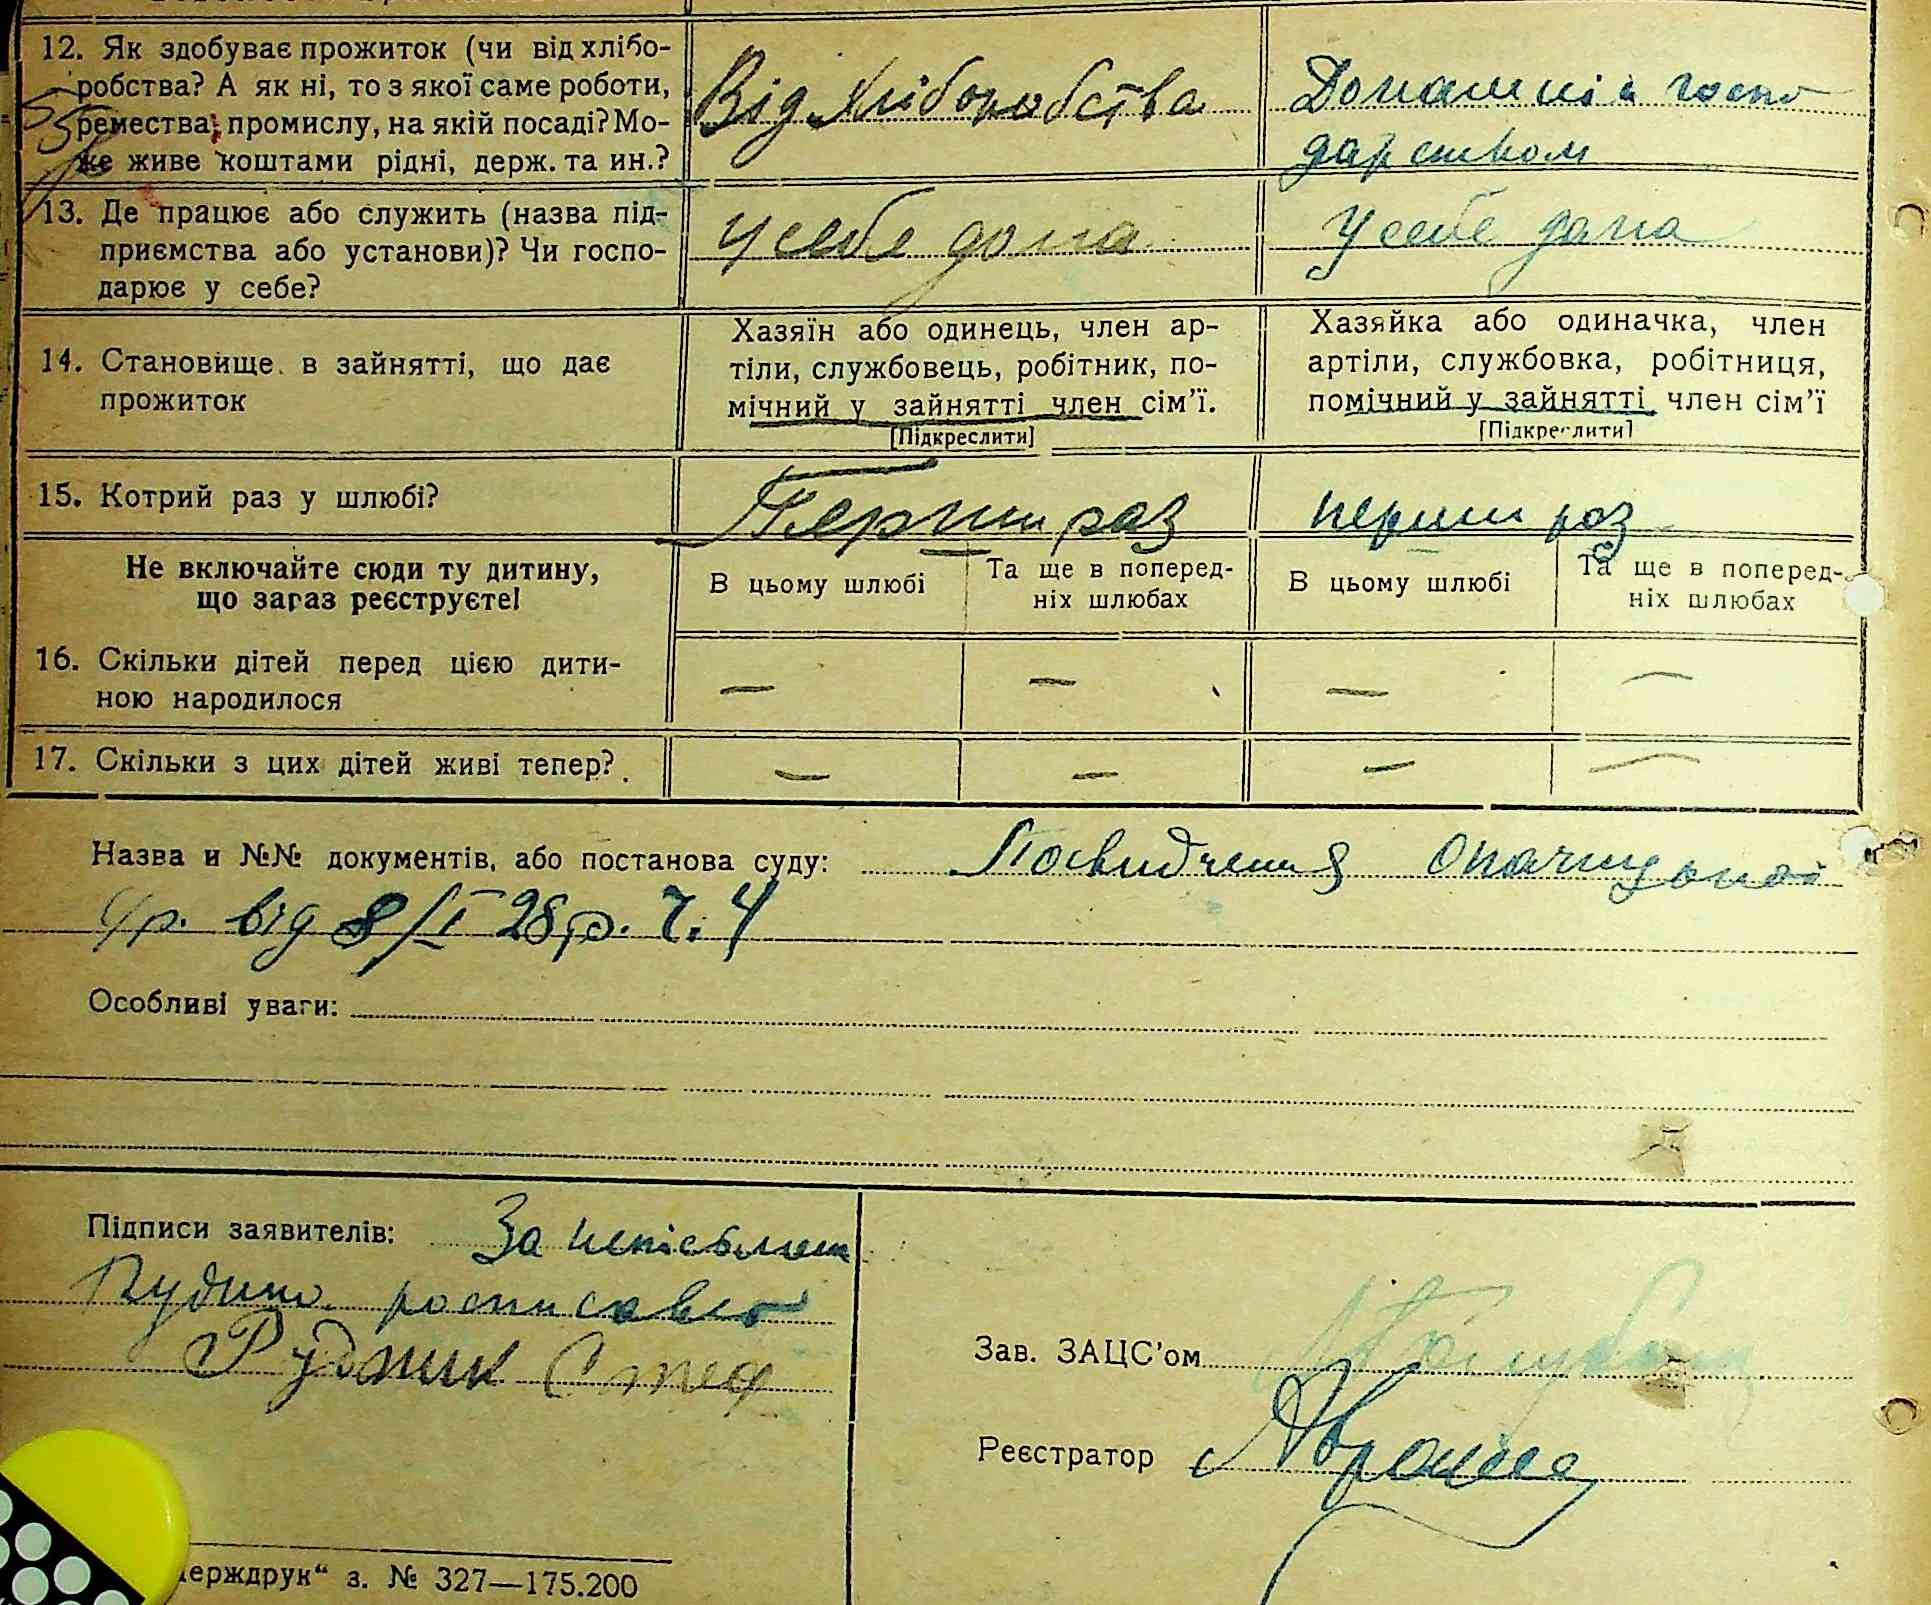 12. Як здобуває прожиток (чи від хлібо-
робства? А як ні, то з якої саме роботи,
ремества, промислу, на якій посаді? Мо-
же живе коштами рідні, держ. та ин.?
Від хліборобства
Домашнім госпо
дарством
13. Де працює або служить (назва під-
приємства або установи)? Чи госпо-
дарює у себе?
у себе дома
у себе дома
14. Становище в зайнятті, що дає
прожиток
Хазяїн або одинець, член ар-
тіли, службовець, робітник, по-
мічний у зайнятті член сім'ї.
[Підкреслити]
Хазяйка або одиначка, член
артіли, службовка, робітниця,
помічний у зайнятті член сім'ї
[Підкреслити]
15. Котрий раз у шлюбі?
Перши раз
перши раз
Не включайте сюди ту дитину,
що зараз реєструєте!
В цьому шлюбі
Та ще в поперед-
ніх шлюбах
В цьому шлюбі
Та ще в поперед-
ніх шлюбах
16. Скільки дітей перед цією дити-
ною народилося
— — — —
17. Скільки з цих дітей живі тепер?
— — — —
Назва и №№ документів, або постанова суду: Посвидчення
с/р. від 8/I 28 р. ч. 4
Особливі уваги:
Підписи заявителів: За
росписався
Рудник Стеф
Зав. ЗАЦС'ом
Реєстратор
ержддрук“ з. № 327—175.200